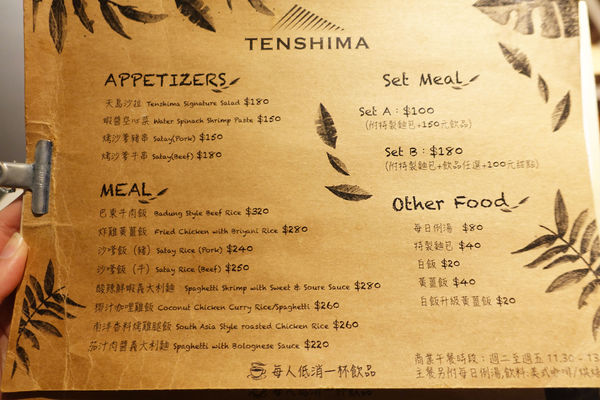 TENSHIMA
APPETIZERS
天島沙拉 Tenshima Signature Salad $180
蝦醬空心菜 Water Spinach Shrimp Paste $150
烤沙爹豬串 Satay(Pork) $150
烤沙爹牛串 Satay(Beef) $180
MEAL
巴東牛肉飯 Badung Style Beef Rice $320
炸雞黃薑飯 Fried Chicken with Briyani Rice $280
沙嗲飯（豬）Satay Rice (Pork) $240
沙嗲飯（牛）Satay Rice (Beef) $250
酸辣鮮蝦義大利麵 Spaghetti Shrimp with Sweet & Soure Sauce $280
椰汁咖哩雞飯 Coconut Chicken Curry Rice/Spaghetti $260
南洋香料烤雞腿飯 South Asia Style roasted Chicken Rice $260
茄汁肉醬義大利麵 Spaghetti with Bolognese Sauce $220
Set Meal
Set A：$100
(附特製麵包+150元飲品)
Set B：$180
(附特製麵包+飲品任選+100元甜點)
Other Food
每日例湯 $80
特製麵包 $40
白飯 $20
黃薑飯 $40
白飯升級黃薑飯 $20
每人低消一杯飲品
商業午餐時段：週二至週五 11:30 - 13
主餐另附每日例湯,飲料:美式咖啡/烘焙